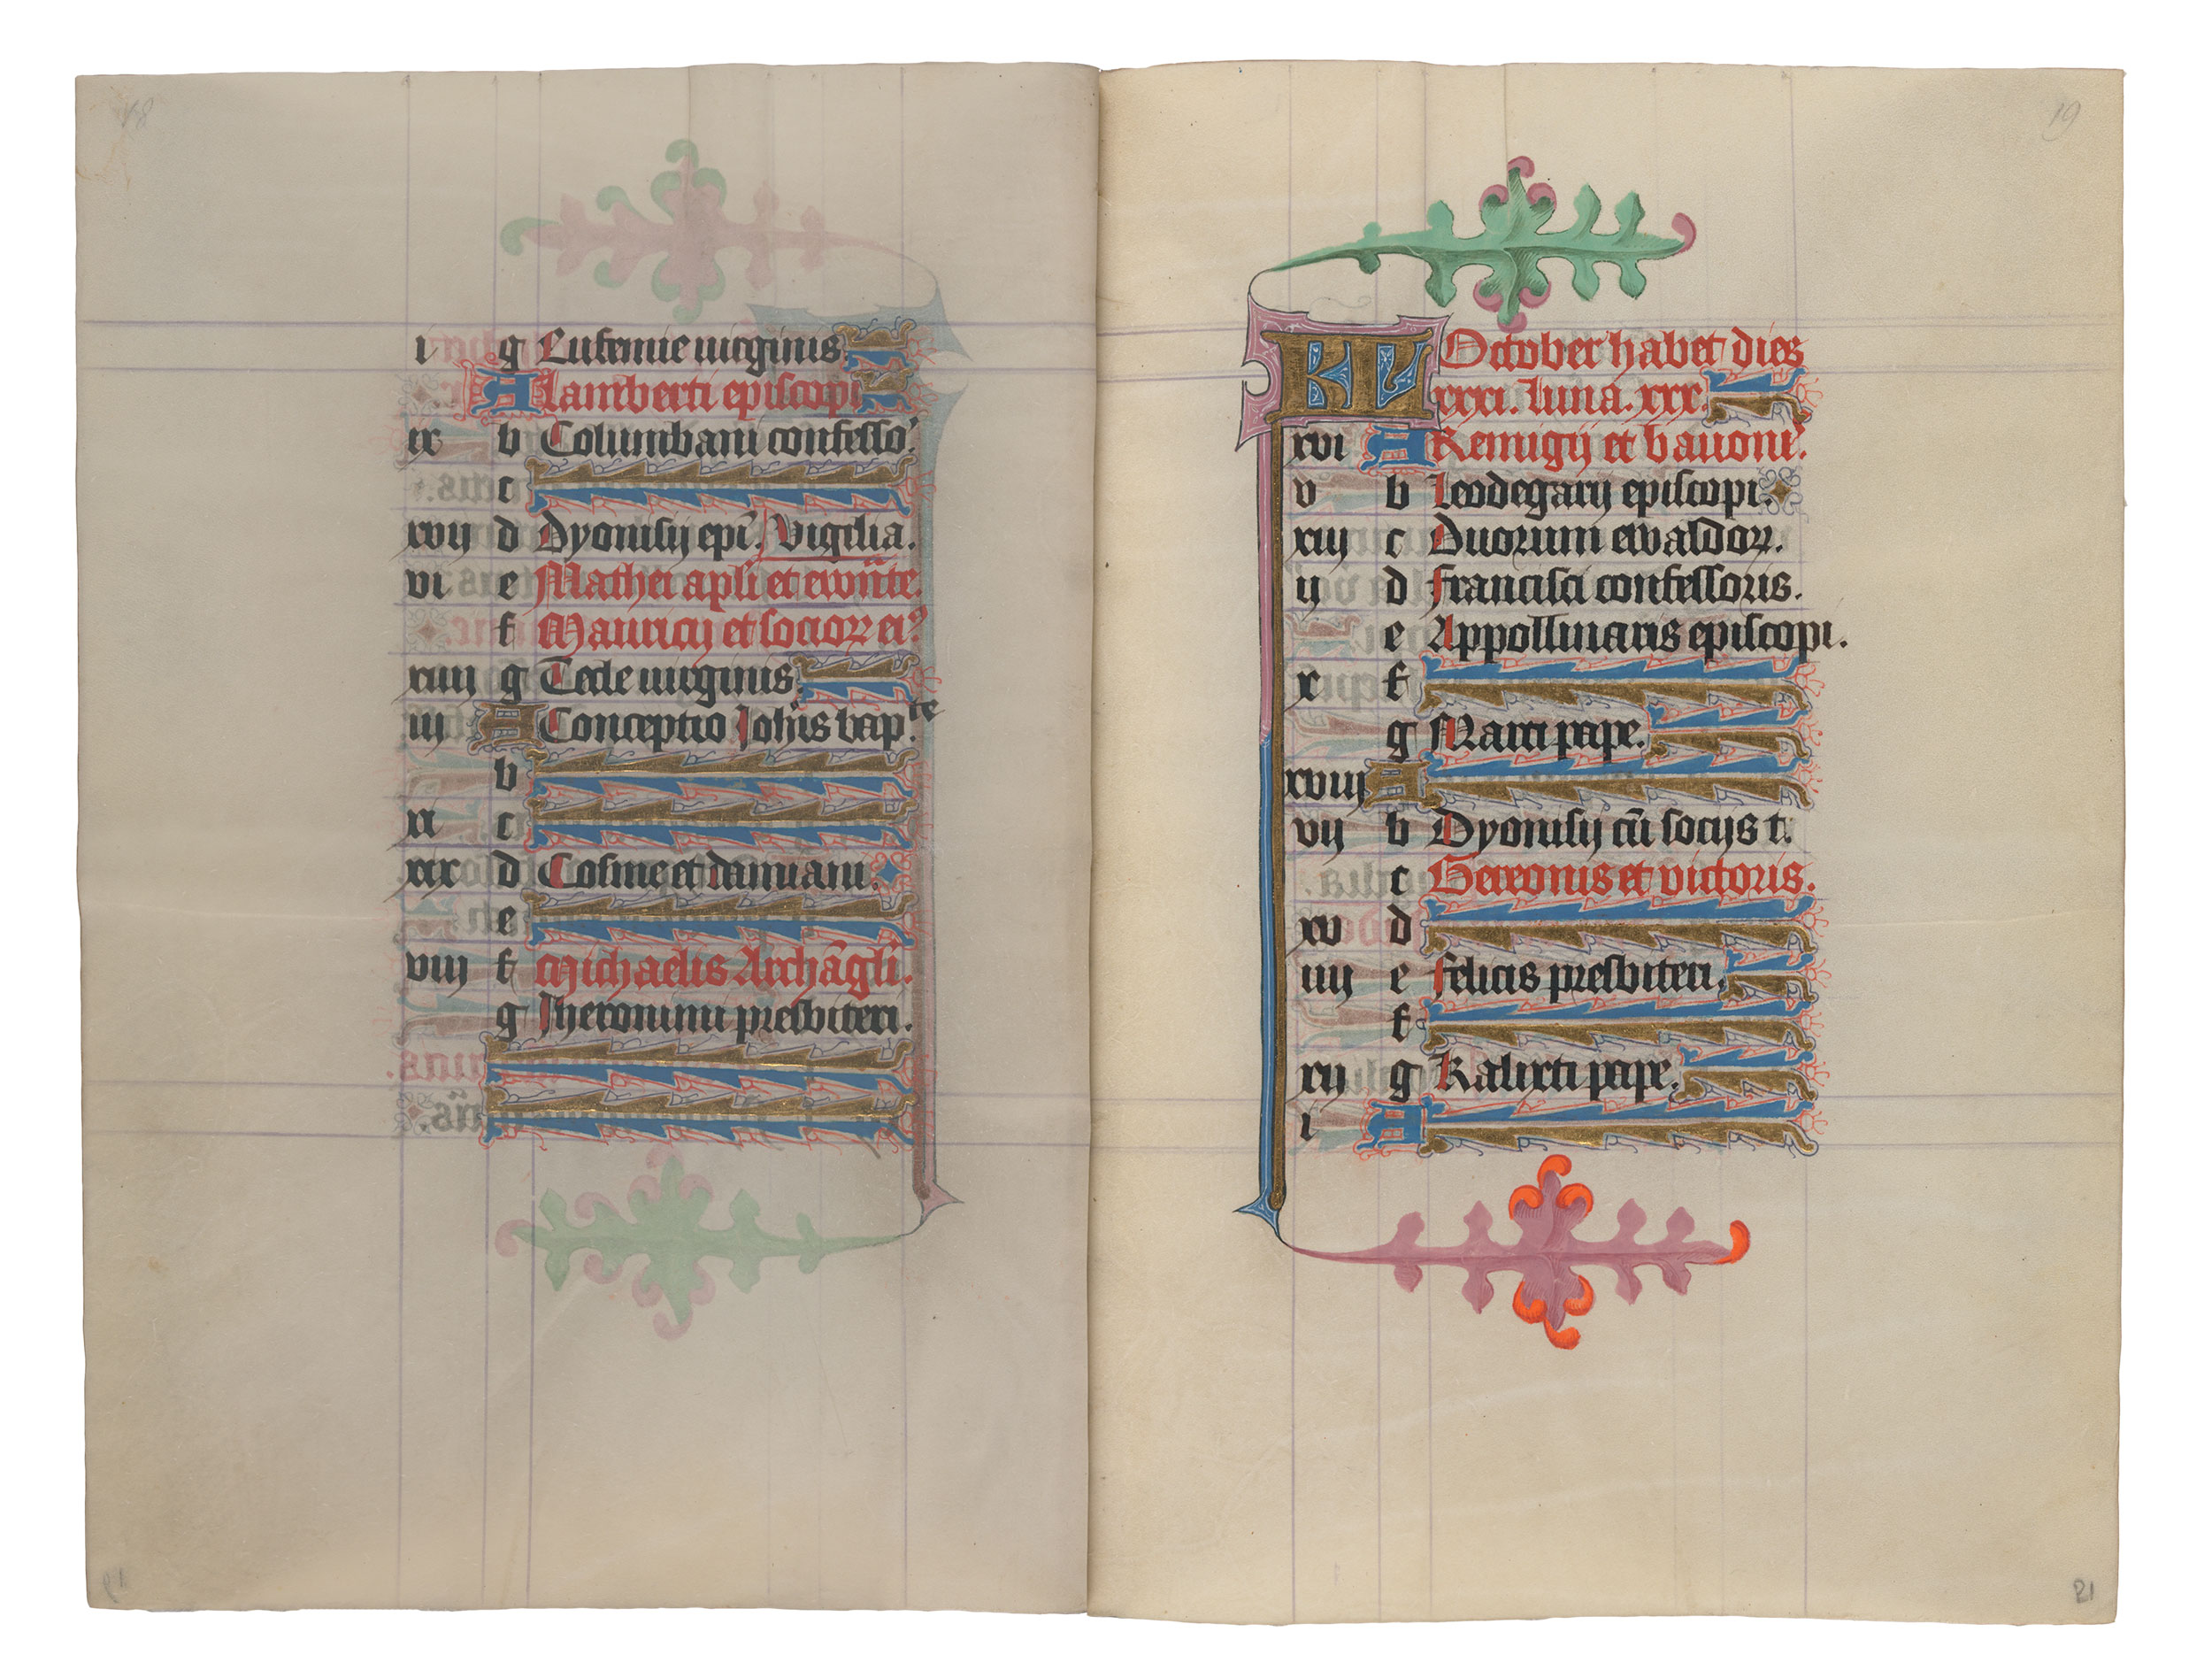 i g Eufemie uirginis
A Lamberti episcopi
ix b Columbani confesso⁹.
c
xvij d Dyonisij epi̅. Vigilia.
vi e Mathei apl̅i et ewa̅̅te.
f Mauricij et socioꝝ ei⁹.
xiiij g Tecle uirginis.
iij A Conceptio Joh̅is bap̅te.
b
xi c
xix d Cosme et damiani.
e
viij f Michaelis Archa̅gl̅i.
g Jheronimi presbiteri.
19
KL October habet dies
xxxi. luna. xxx.
xvi A Remigij et bauoni⁹.
v b Leodegarij episcopi.
xiij c Duorum ewaldoꝝ.
ij d Francisci confessoris.
e Appollinaris episcopi.
x f
g Marci pape.
xviij A
vij b Dyonisij cu̅ socijs t.
c Gereonis et victoris.
xv d
iiij e felicis presbiteri.
f
xij g Kalixti pape.
i A
21